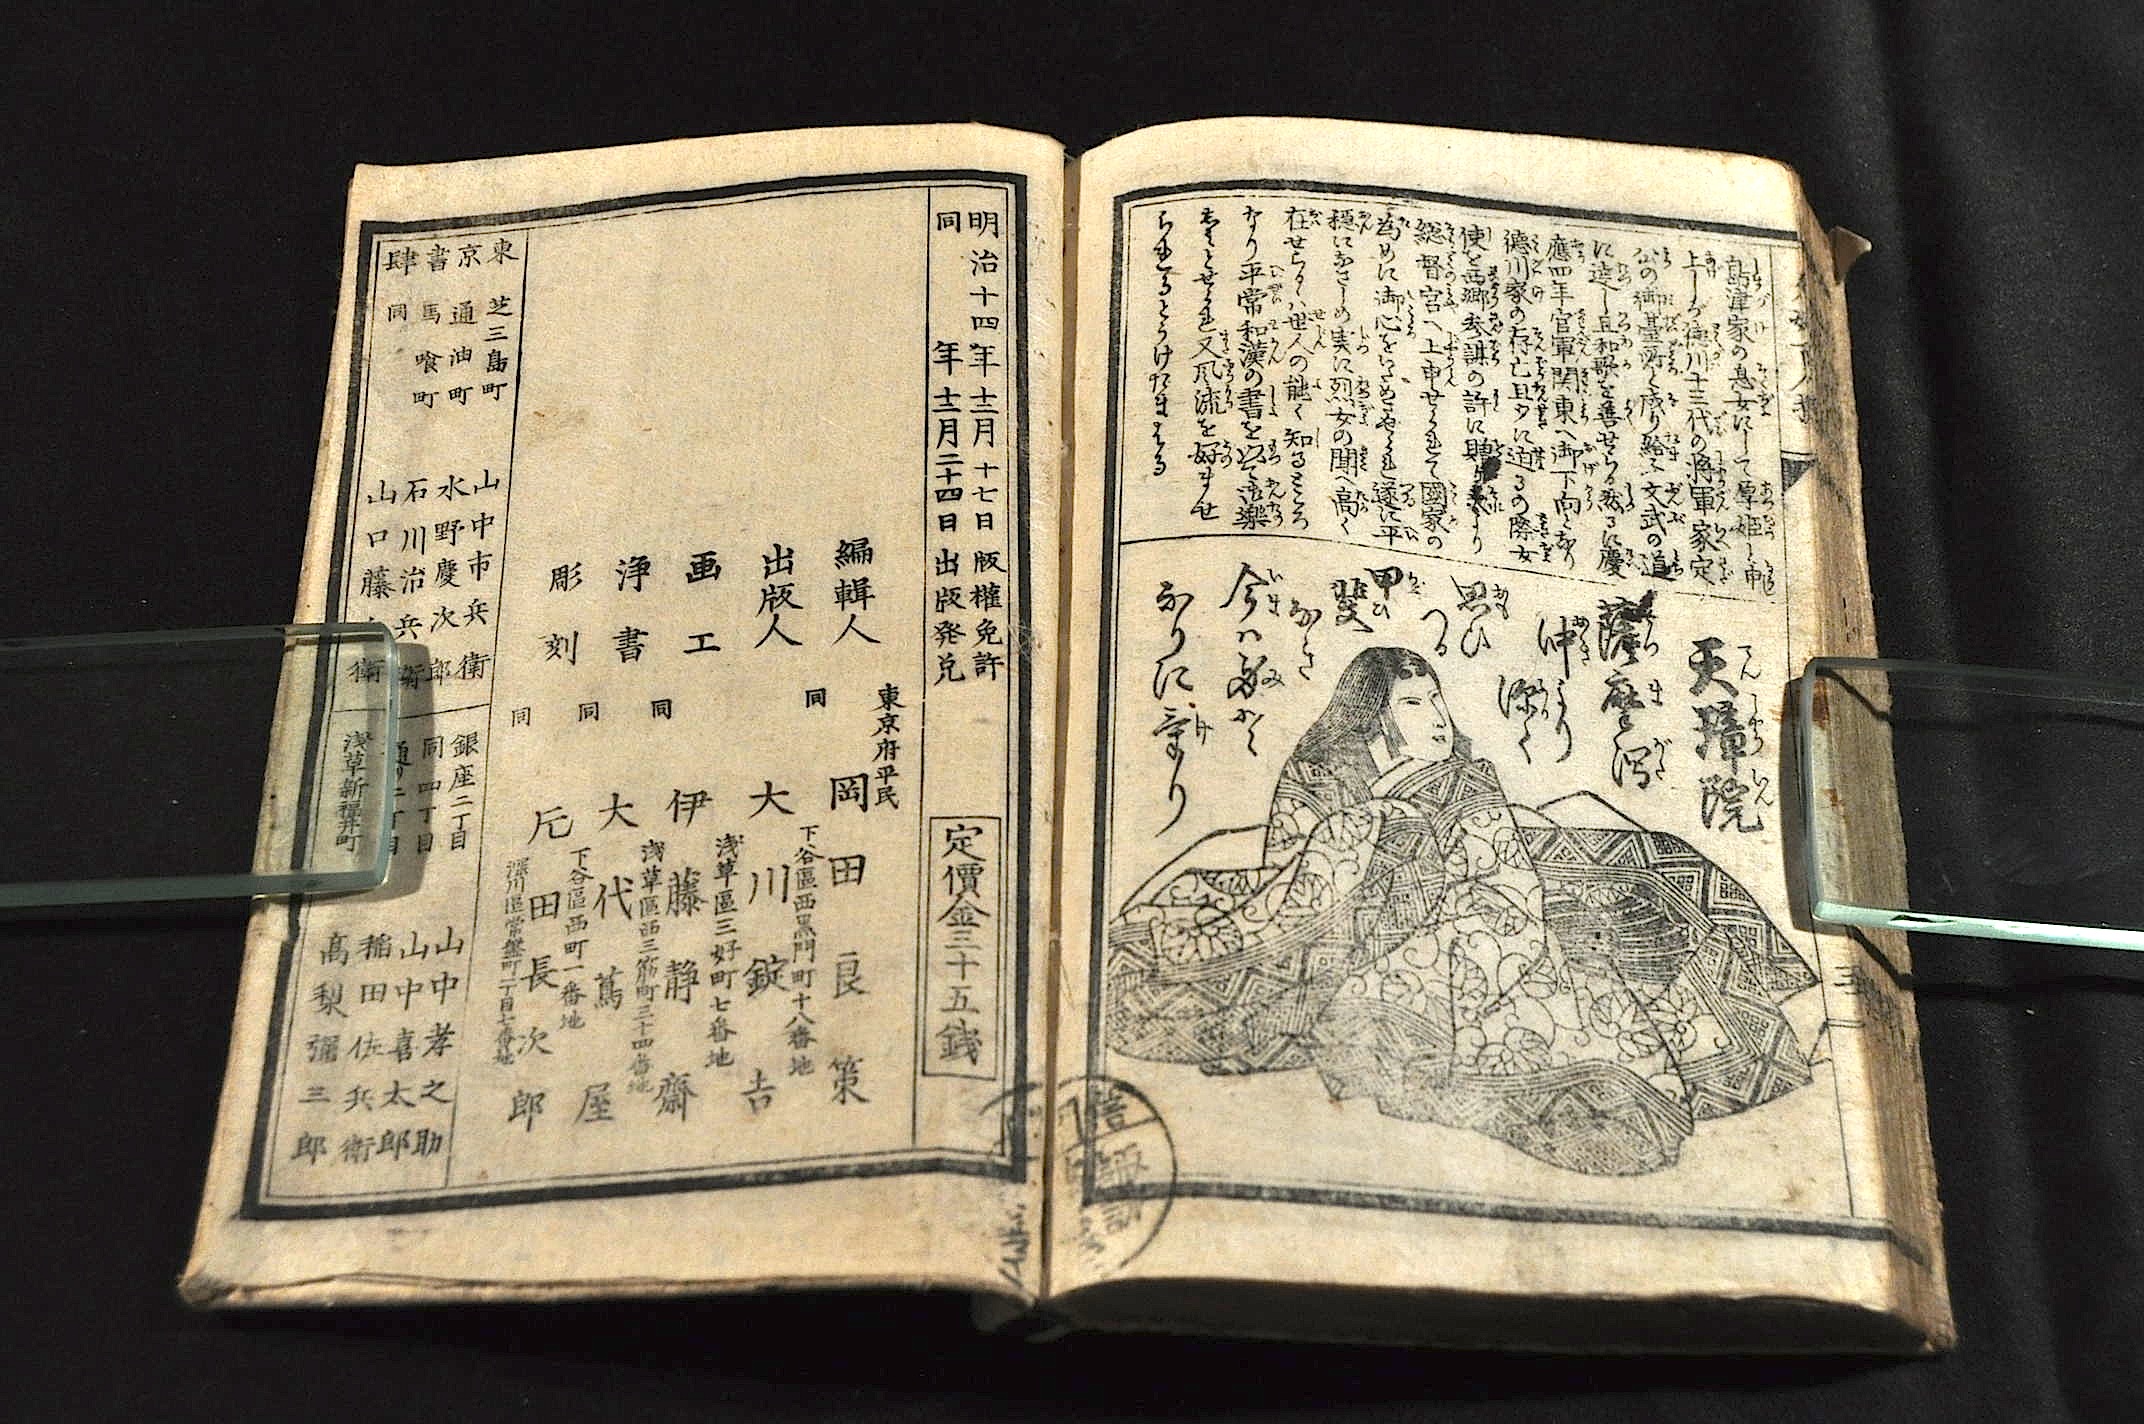 島津家の息女にして篤姫と申
上しが徳川十三代の将軍家定
公の御基所と成り給ふ文武の道
に達し且和歌を善せらる然るに慶
應四年官軍関東へ御下向となり
徳川家の存亡且夕に迫るの際女
使を西郷参謀の許に贈
総督宮へ上申せられて國家の
為めに御心をいためさせられ遂に平
穏になさしめ実に烈女の聞へ高く
在せらるゝは世人の能く知るところ
なり平常和漢の書を以て
又風流を好ませ
天璋院
薩摩潟
沖より深く
思ひつる
甲斐なき
今は
なりにけり
明治十四年十二月十七日版權免許
同年十二月二十四日出版発兌
定價金三十五銭
編輯人 東京府平民 岡田良策
下谷區西黒門町十八番地
出版人 同 大川錠吉
浅草區三好町七番地
画工 同 伊藤静齋
浅草區西三筋町三十四番地
浄書 同 大代蔦屋
下谷區西町一番地
彫刻 同 田長次郎
深川區常盤町二丁目七番地
東京書肆
芝三島町 山中市兵衛
通油町 水野慶次郎
馬喰町 石川治兵衛
同 山口藤 衛
銀座二丁目 山中孝之助
同四丁目 山中喜太郎
通り二丁目 稲田佐兵衛
浅草新福井町 高梨彌三郎